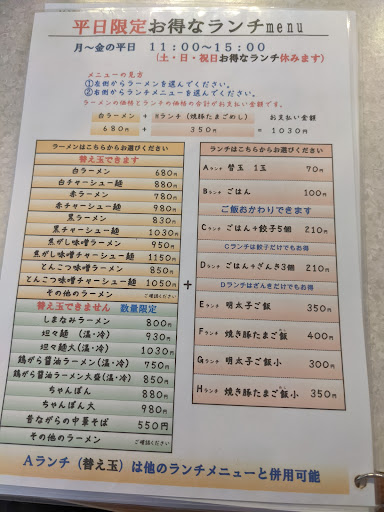 平日限定お得なランチmenu
月～金の平日 11:00～15:00
(土・日・祝日お得なランチ休みます)
メニューの見方
①左側からラーメンを選んでください。
②右側からランチメニューを選んでください。
ラーメンの価格とランチの価格の合計がお支払い金額です。
白ラーメン + Hランチ(焼豚たまごめし) お支払い金額
680円 + 350円 = 1030円
ラーメンはこちらからお選びください
替え玉できます
白ラーメン 680円
白チャーシュー麺 880円
赤ラーメン 780円
赤チャーシュー麺 980円
黒ラーメン 830円
黒チャーシュー麺 1030円
焦がし味噌ラーメン 950円
焦がし味噌チャーシュー麺 1150円
とんこつ味噌ラーメン 850円
とんこつ味噌チャーシュー麺 1050円
その他のラーメン ご確認ください
替え玉できません 数量限定
しまなみラーメン 800円
坦々麺 (温・冷) 930円
坦々麺大(温・冷) 1030円
鶏がら醤油ラーメン(温・冷) 750円
鶏がら醤油ラーメン大盛(温・冷) 850円
ちゃんぽん 880円
ちゃんぽん大 980円
昔ながらの中華そば 550円
その他のラーメン ご確認ください
+
ランチはこちらからお選びください
Aランチ 替玉 1玉 70円
Bランチ ごはん 100円
ご飯おかわりできます
Cランチ ごはん+餃子5個 210円
Cランチは餃子だけでもお得
Dランチ ごはん+ざんき3個 210円
Dランチはざんきだけでもお得
Eランチ 明太子ご飯 350円
Fランチ 焼き豚たまご飯 400円
Gランチ 明太子ご飯小 300円
Hランチ 焼き豚たまご飯小 350円
Aランチ(替え玉)は他のランチメニューと併用可能